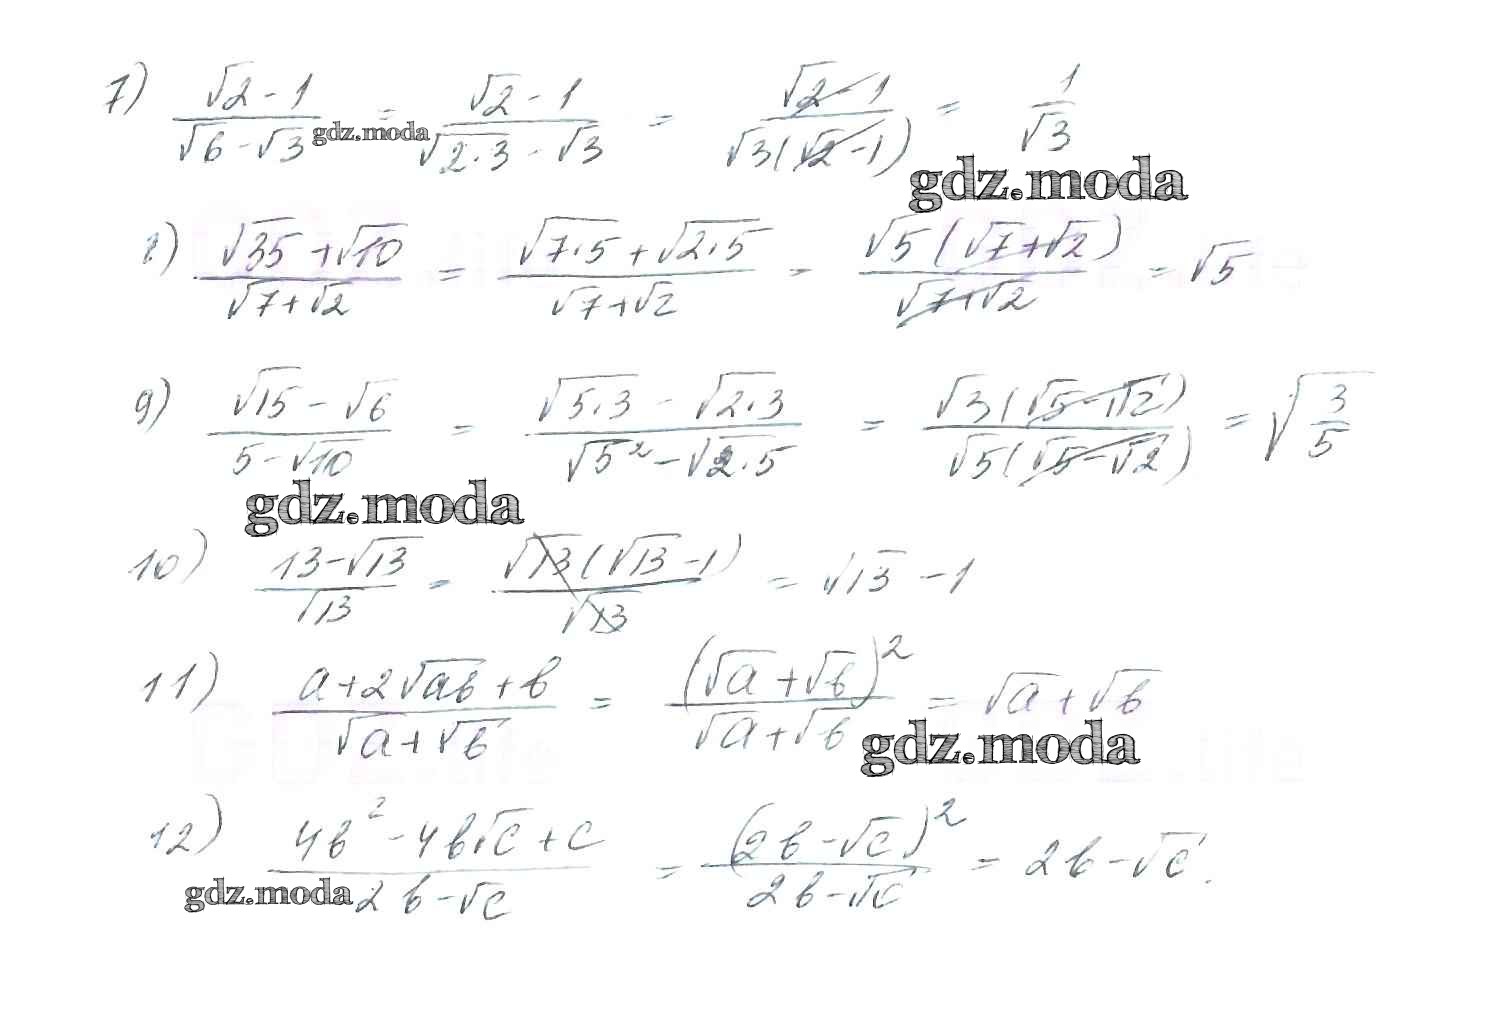 7) (√2 - 1)/(√6 - √3) = (√2 - 1)/(√2·3 - √3) = (√2 - 1)/(√3(√2 - 1)) = 1/√3
gdz.moda
gdz.moda
8) (√35 + √10)/(√7 + √2) = (√7·5 + √2·5)/(√7 + √2) = (√5(√7 + √2))/(√7 + √2) = √5
9) (√15 - √6)/(5 - √10) = (√5·3 - √2·3)/(√5² - √2·5) = (√3(√5 - √2))/(√5(√5 - √2)) = √(3/5)
gdz.moda
10) (13 - √13)/√13 = (√13(√13 - 1))/√13 = √13 - 1
11) (a + 2√ab + b)/(√a + √b) = (√a + √b)²/(√a + √b) = √a + √b
gdz.moda
12) (4b² - 4b√c + c)/(2b - √c) = (2b - √c)²/(2b - √c) = 2b - √c.
gdz.moda